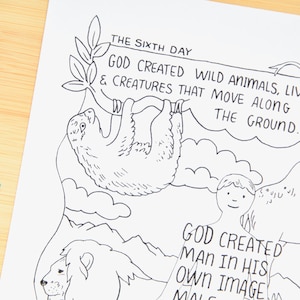 THE SIXTH DAY
GOD CREATED WILD ANIMALS, LIV
& CREATURES THAT MOVE ALONG
THE GROUND.
GOD CREATED
MAN IN HIS
OWN IMAGE